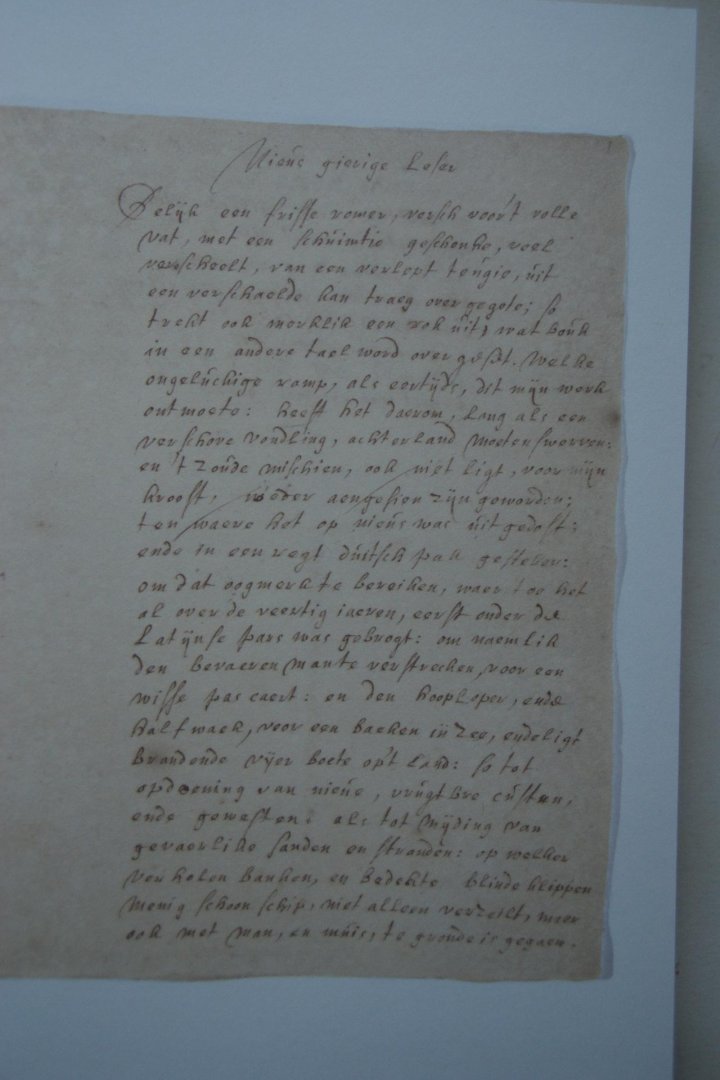 Nieus gierige Leser
Gelijk een frisse romer, versch voor't volle
vat, met een schuimtie geschonke, veel
verscheelt, van een verlept teugie, uit
een verschaelde kan traeg over gegote; so
trekt ook merklik een rok uit, wat bouk
in een andere tael word over geset. Welke
ongeluckige ramp, als eertijds, dit mijn werk
ontmoete: heeft het daerom, lang als een
verschove vondling, achterland moeten swerven:
en 't zoude mischien, ook niet ligt, voor mijn
kroost, weder aengesien zijn geworden;
ten waere het op nieus was uit gedost:
ende in een regt duitsch pak gesteken:
om dat oogmerk te bereiken, waer toe het
al over de veertig iaeren, eerst onder de
Latijnse pars was gebrogt: om naemlik
den bevaeren man te verstrecken, voor een
wisse pas caert: en den hooploper, ende
half waek, voor een baeken in zee, ende ligt
brandende vijer boete op't Land: so tot
opdoening van nieue, vrugtbre custen,
ende gewesten: als tot mijding van
gevaerlike sanden en stranden: op welker
verholen banken, en bedekte blinde klippen
menig schoon schip, niet alleen verzeilt, maer
ook met man, en muis, te gronde is gegaen.